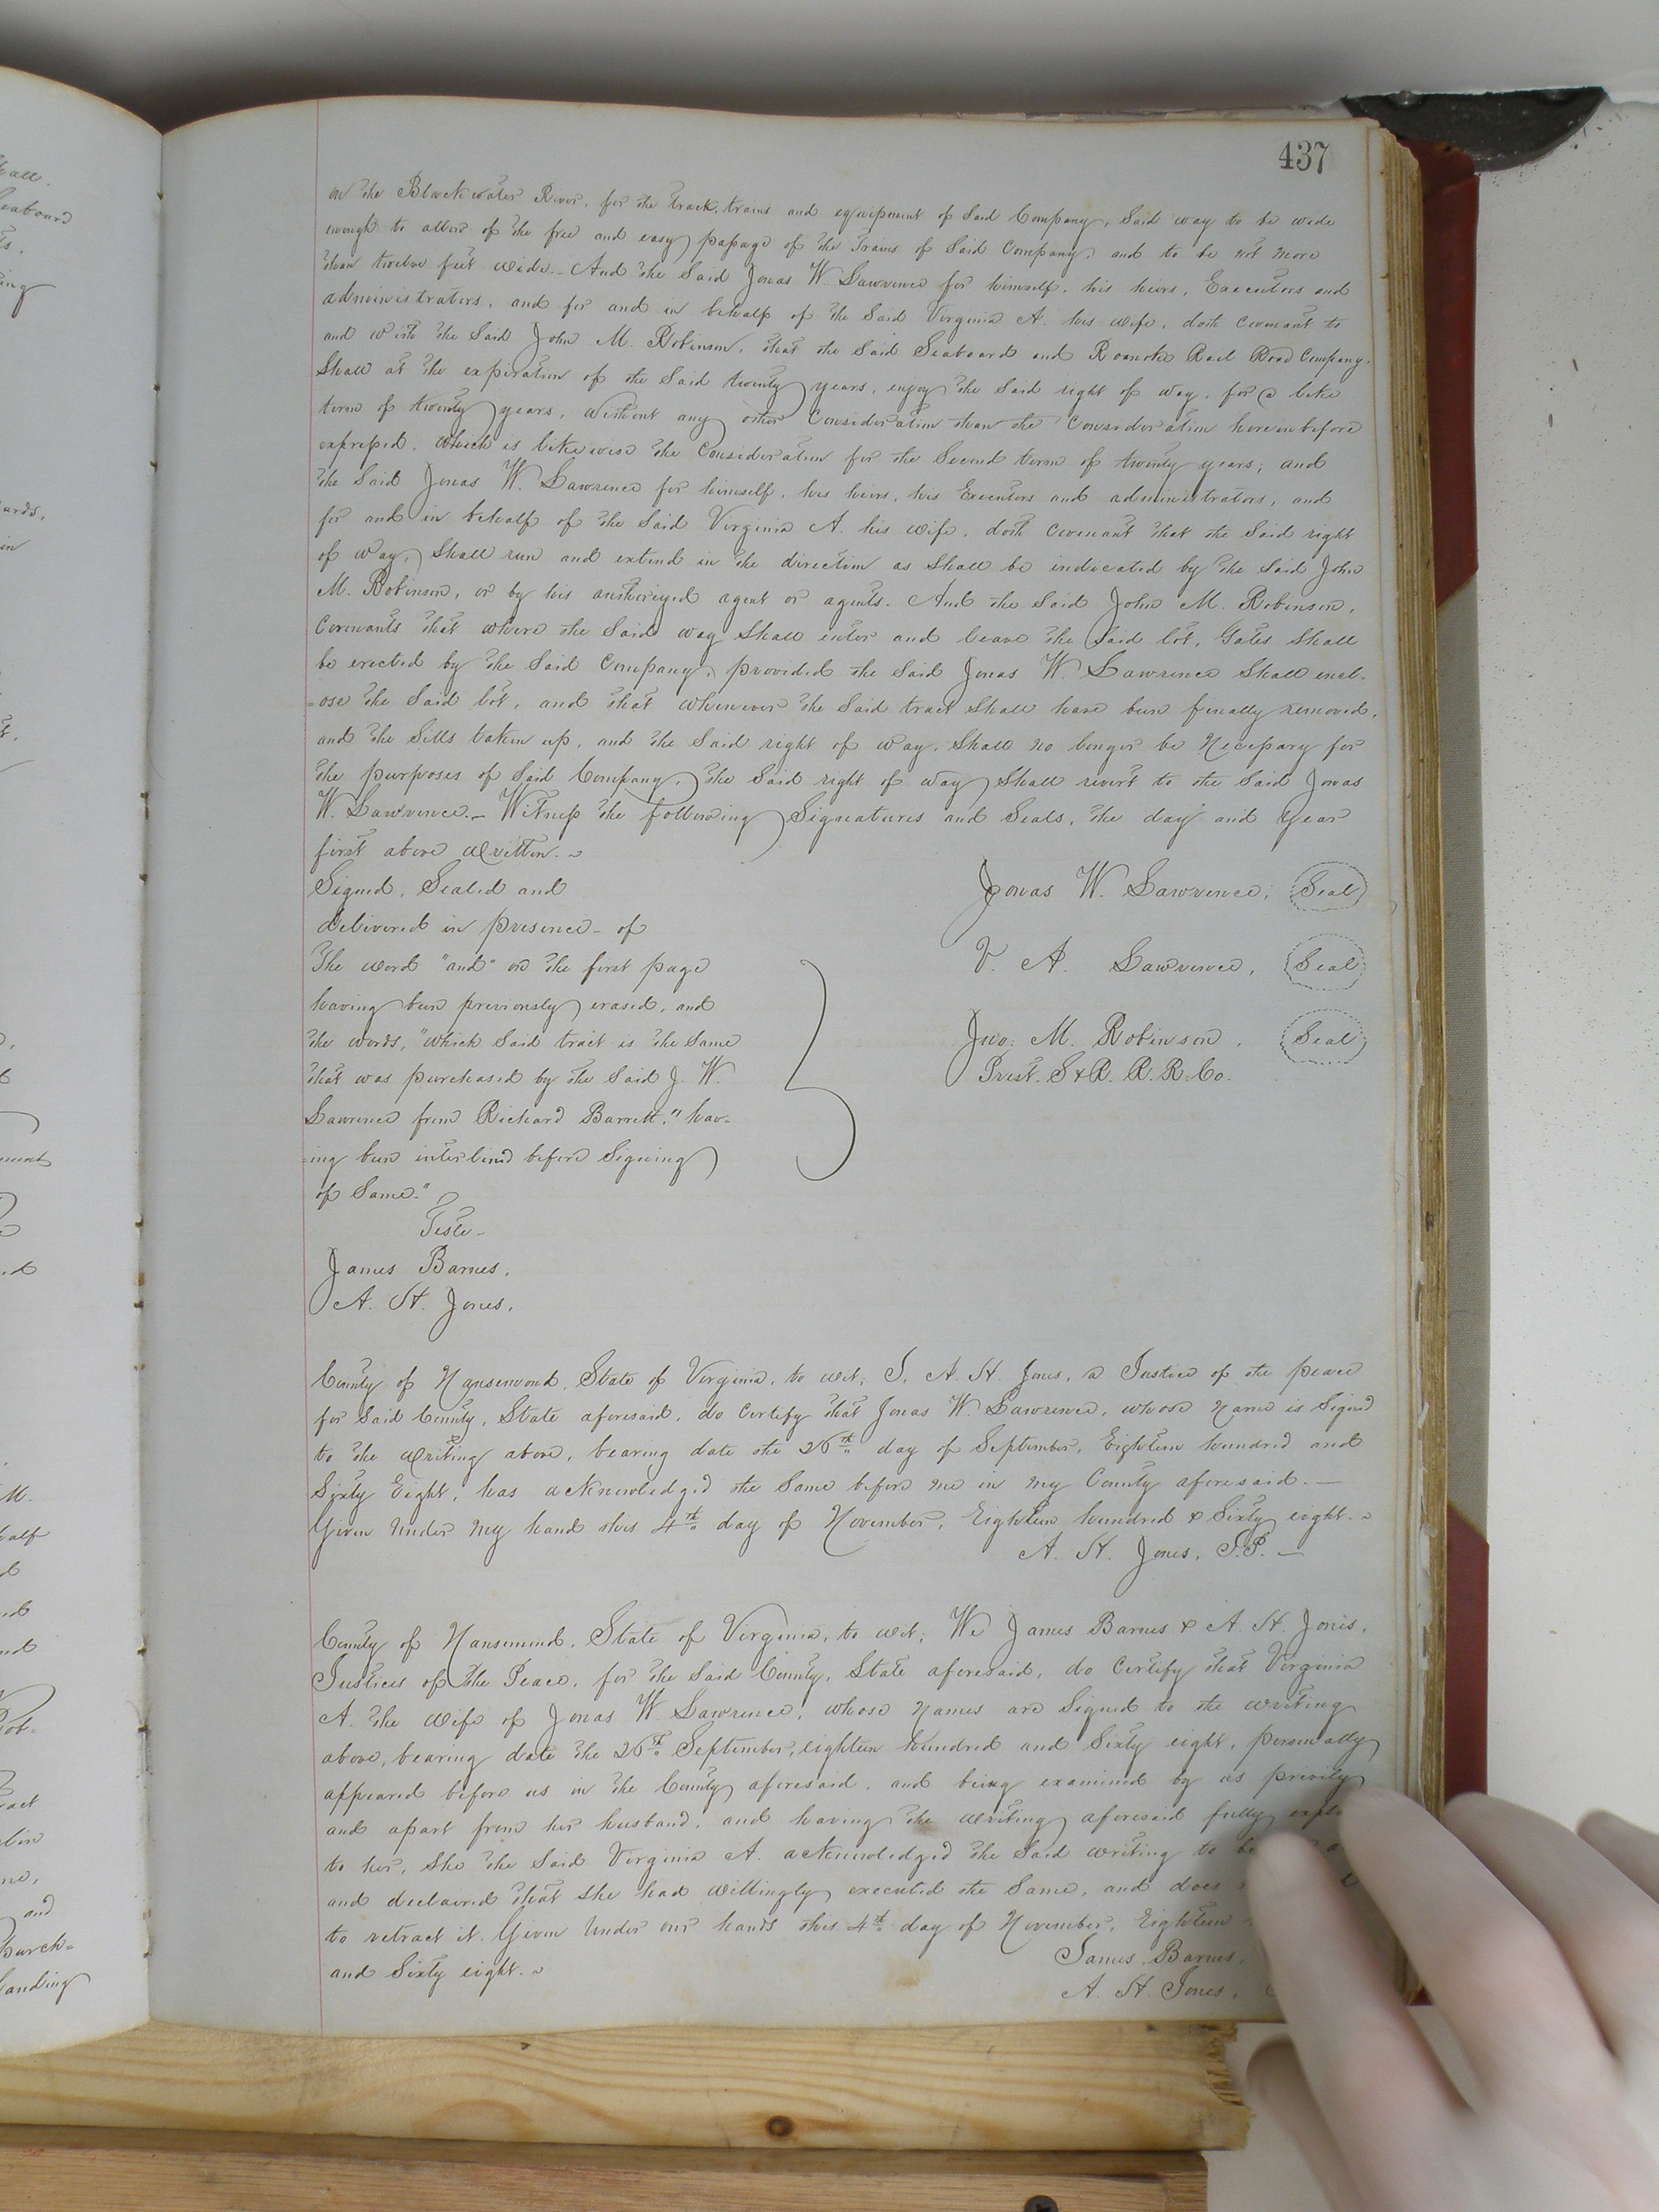 437
on the Blackwater River, for the track, trains and equipment of Said Company, Said way to be wide
enough to allow of the free and easy passage of the Trains of Said Company, and to be not more
than twelve feet wide. – And the Said Jonas W. Lawrence for himself, his heirs, Executors and
administrators, and for and in behalf of the Said Virginia A. his wife, doth Covenant to
and with the Said John M. Robinson, that the Said Seaboard and Roanoke Rail Road Company,
Shall at the expiration of the Said twenty years, enjoy the Said right of way, for a like
term of twenty years, without any other Consideration than the Consideration hereinbefore
expressed. which is likewise the Consideration for the Second term of twenty years; and
the Said Jonas W. Lawrence for himself, his heirs, his Executors and administrators, and
for and in behalf of the Said Virginia A. his wife, doth Covenant that the Said right
of way, Shall run and extend in the direction as Shall be indicated by the Said John
M. Robinson, or by his authorized agent or agents. And the Said John M. Robinson,
Covenants that where the Said way Shall enter and leave the Said lot, Gates Shall
be erected by the Said Company, provided the Said Jonas W. Lawrence Shall encl-
-ose the Said lot, and that whenever the Said tract Shall have been finally removed,
and the Sills taken up, and the Said right of way, Shall no longer be Necessary for
the purposes of Said Company, the Said right of way Shall revert to the Said Jonas
W. Lawrence. – Witness the following Signatures and Seals, the day and Year
first above written. ~
Signed, Sealed and
delivered in presence – of
The word "and" on the first page
having been previously erased, and
the words, "which Said tract is the Same
that was purchased by the Said J. W.
Lawrence from Richard Barrett," hav-
-ing been interlined before Signing
of Same."
Jonas W. Lawrence, Seal
V. A. Lawrence, Seal
Jno: M. Robinson, Seal
Prest. S & R. R. R. Co.
Teste –
James Barnes,
A. H. Jones,
County of Nansemond, State of Virginia, to wit; I, A. H. Jones, a Justice of the peace
for Said County, State aforesaid, do Certify that Jonas W. Lawrence, whose Name is Signed
to the writing above, bearing date the 26th day of September, Eighteen hundred and
Sixty Eight, has acknowledged the Same before me in my County aforesaid. –
Given Under My hand this 4th day of November, Eighteen hundred & Sixty eight. ~
A. H. Jones, J.P. –
County of Nansemond, State of Virginia, to wit; We James Barnes & A. H. Jones,
Justices of the Peace, for the Said County, State aforesaid, do Certify that Virginia
A. the wife of Jonas W. Lawrence, whose Names are Signed to the writing
above, bearing date the 26th September, eighteen hundred and Sixty eight, personally
appeared before us in the County aforesaid, and being examined by us privily
and apart from her husband, and having the writing aforesaid fully
to her, She the Said Virginia A. acknowledged the Said writing to be
and declared that She had willingly executed the Same, and does
to retract it. Given Under our hands this 4th day of November, Eighteen
and Sixty eight. ~
James Barnes,
A. H. Jones,